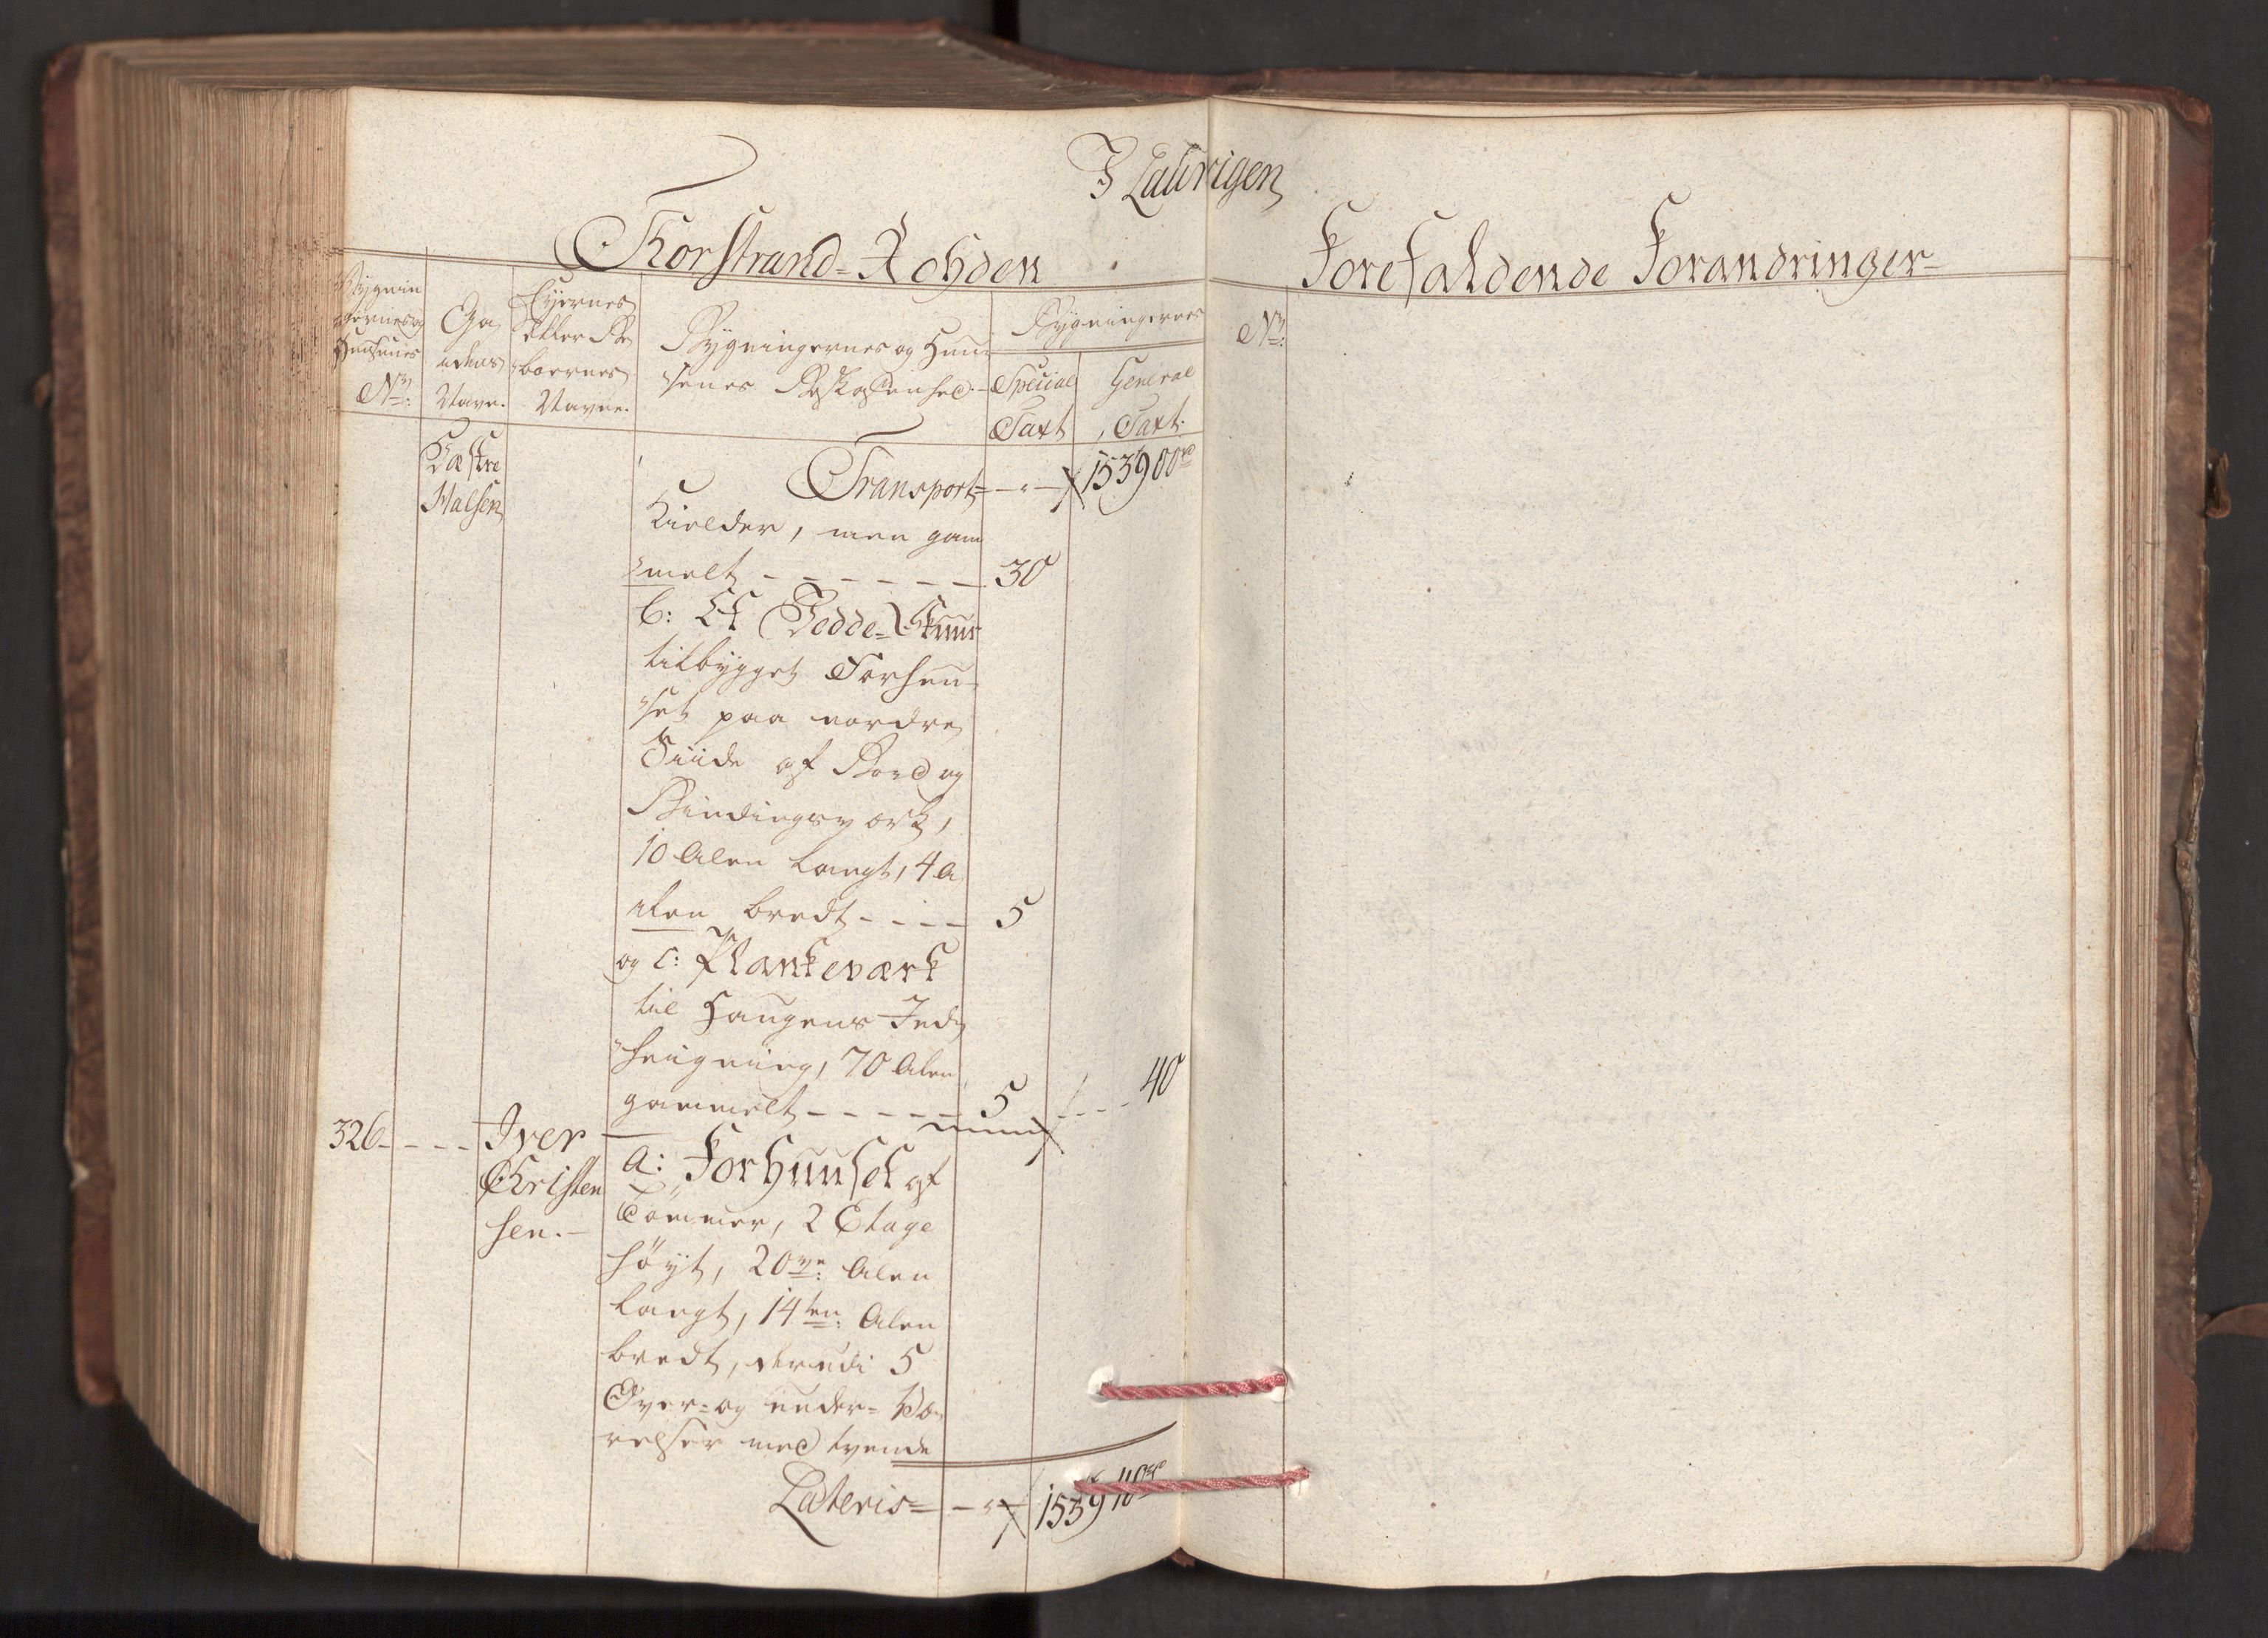 I Laurvigen
Thorstrand-Rohden
Forefaldende Forandringer
Bygnin
gernes og
Huusenes
No:
Ga
dens
Navn.
Eyernes
eller Be
boernes
Navne.
Bygningernes og Huu
senes Beskaffenhed.
Bygningernes
Special
Taxt
General
Taxt.
No:
Wæstre
Halsen
Transport 153900 rd
Kielder, men gam
melt 30
b: Et Vedde-Skuur
tilbygget Forhuu
set paa nordre
Siide af Bord og
Bindingsværk,
10 Alen langt, 4 a
alen bredt 5
og c: Plankeværk
til Haugens Ind
heigning, 70 Alen
gammelt 5 40
326 Iver
Christen
sen.
a: Forhuuset af
Tømmer, 2 Etage
høyt, 20ve: Alen
langt, 14ten: Alen
bredt, derudi 5
Over- og under- Væ
relser med tvende
Lateris 153940 rd